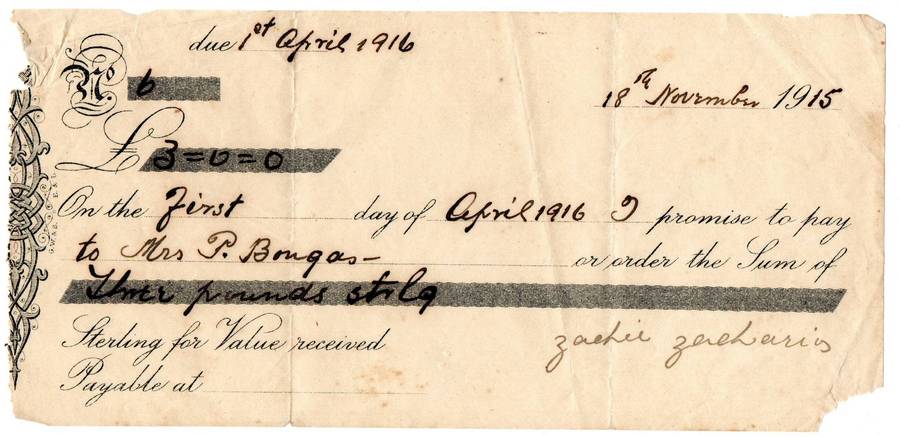 due 1st April 1916
No 6
18th November 1915
£ 3=0=0
On the First day of April 1916 I promise to pay
to Mrs P. Bongas- or order the Sum of
Three pounds strlg
Sterling for Value received
zachie zacharios
Payable at